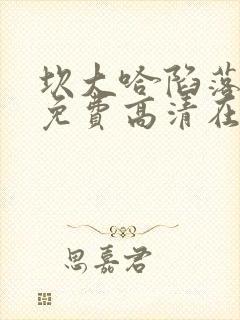 坎大哈陷落
免费高清在
思嘉君